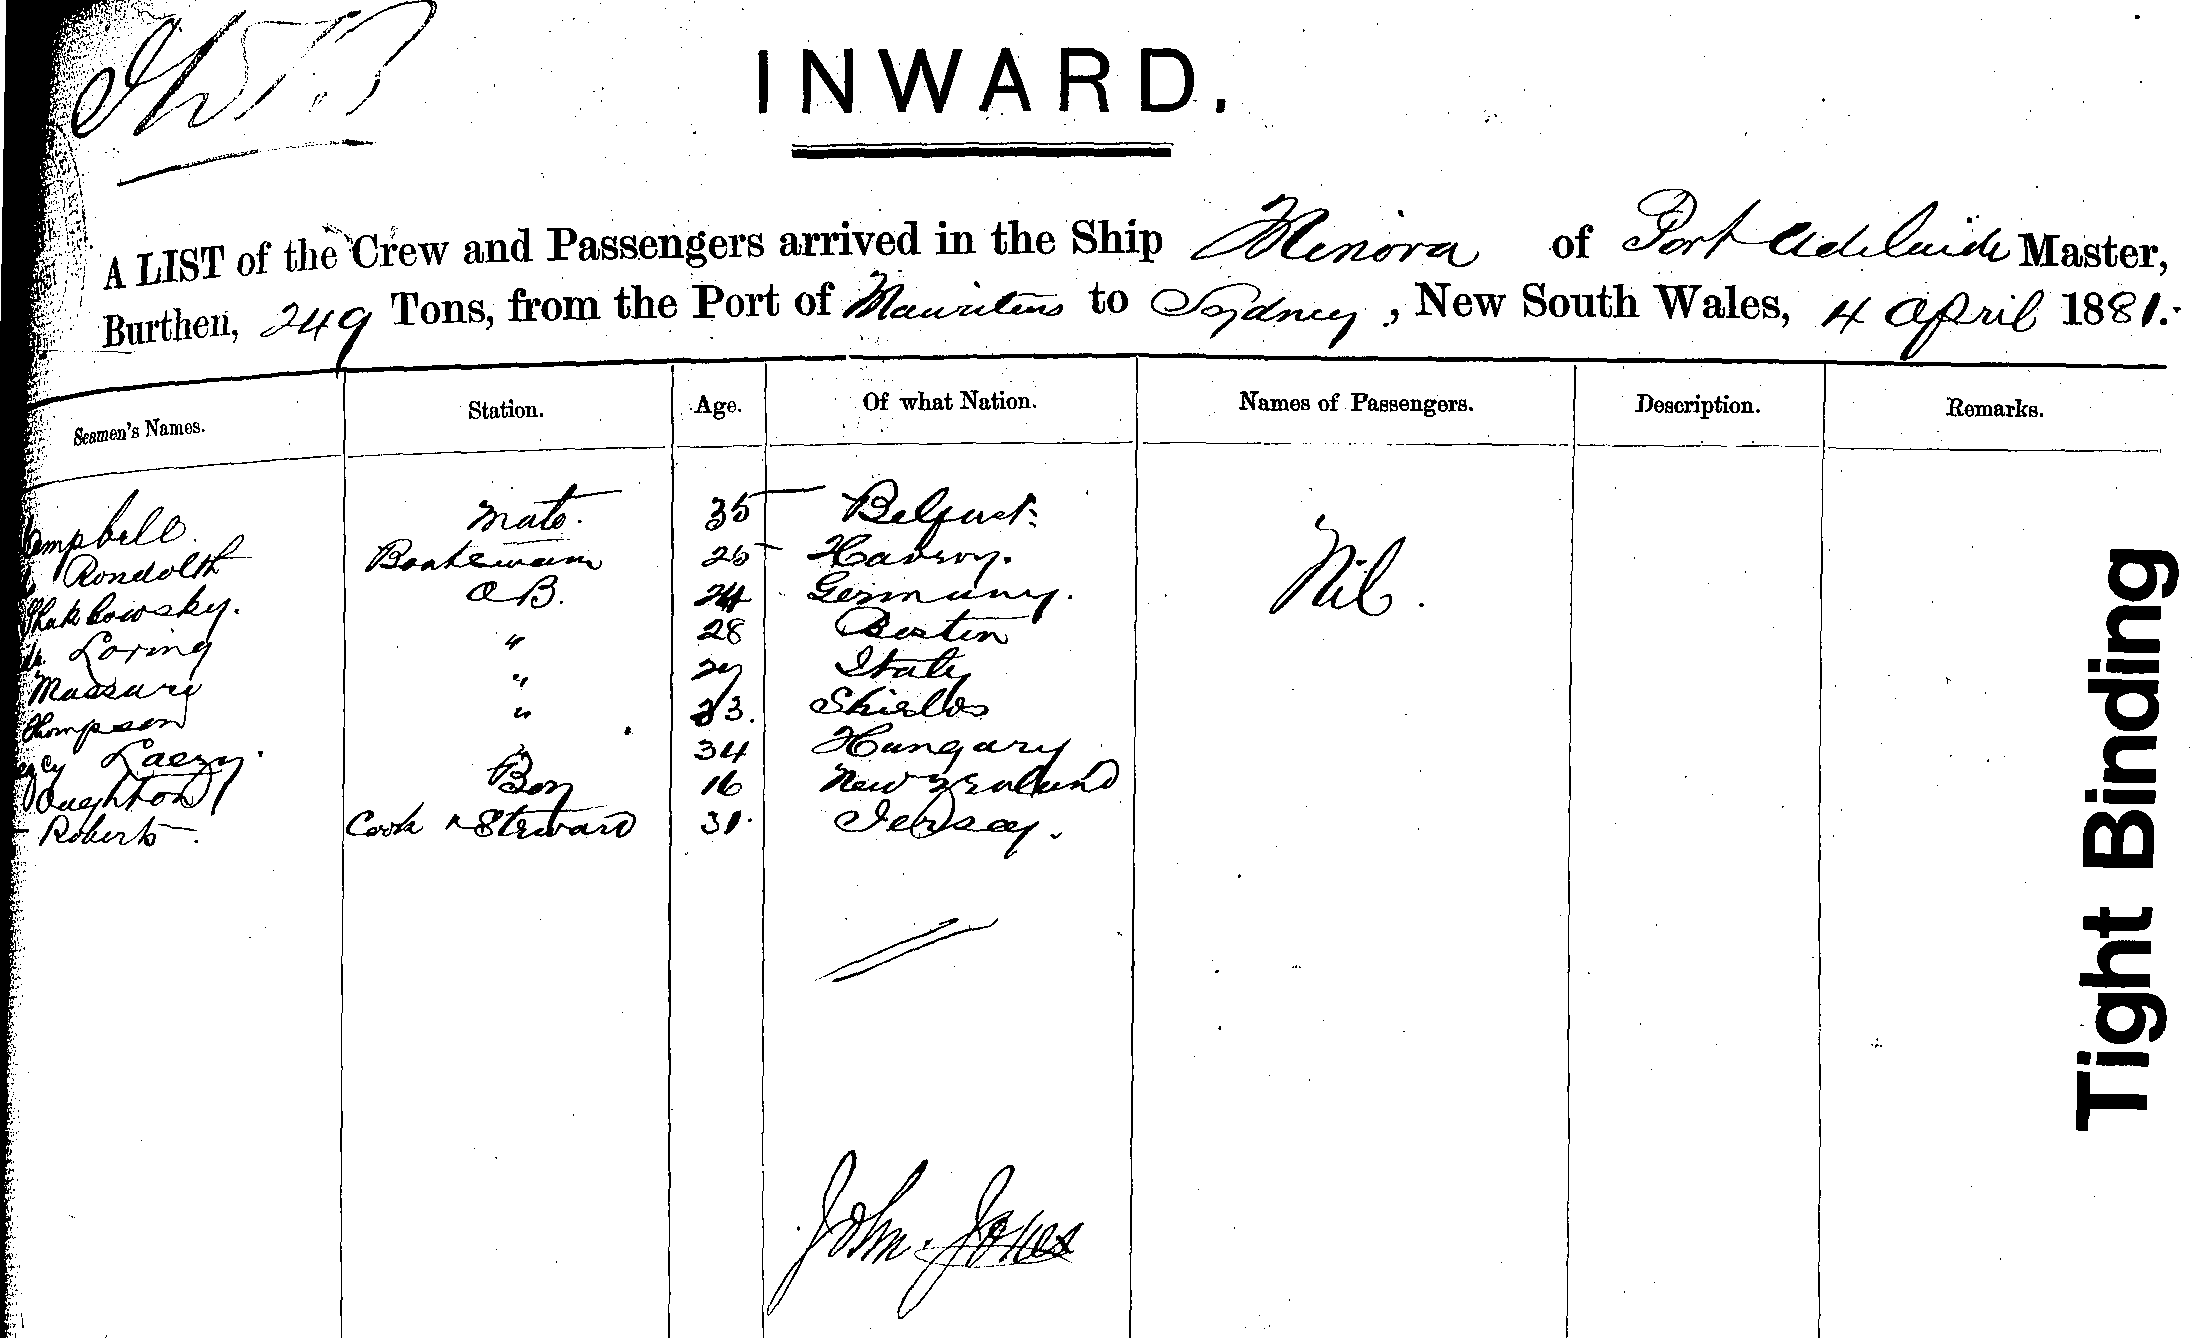 INWARD.
A LIST of the Crew and Passengers arrived in the Ship Menora of Port Adelaide Master,
Burthen, 249 Tons, from the Port of Mauritius to Sydney, New South Wales, 4 April 1881.
Seamen's Names. Station. Age. Of what Nation. Names of Passengers. Description. Remarks.
Campbell. Mate. 35 Belfast Nil.
Rondolth Boatswain 25
A B. 24 Germany.
Loring " 28 Boston
Massure " Italy
Thompson " 23. Shields
Laezy. " 34 Hungary
Boy 16 New Zealand
Roberts. Cook & Steward 31. Jersey.
John Jones
Tight Binding